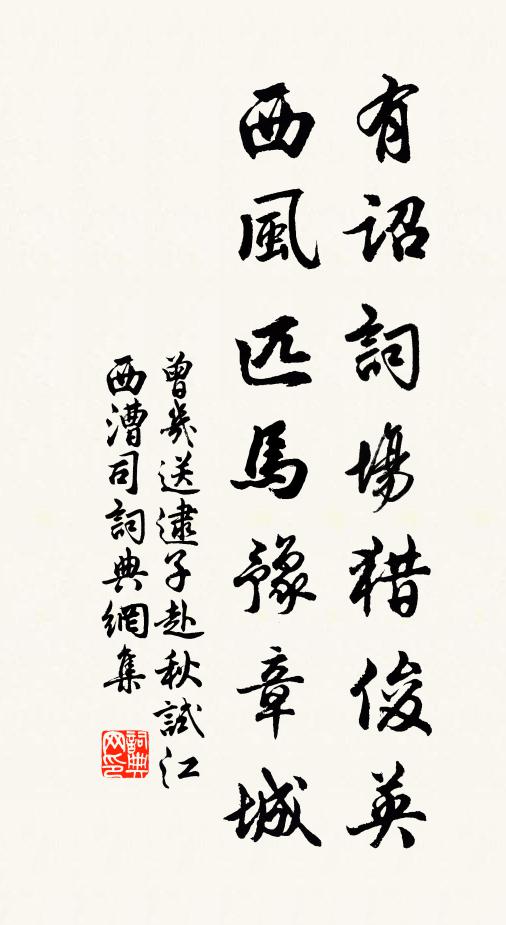 有詔詞場猎俊英
西風匹馬豫章城
曾幾送逮子赴秋試江
西漕司詞典網集
詞典
网印